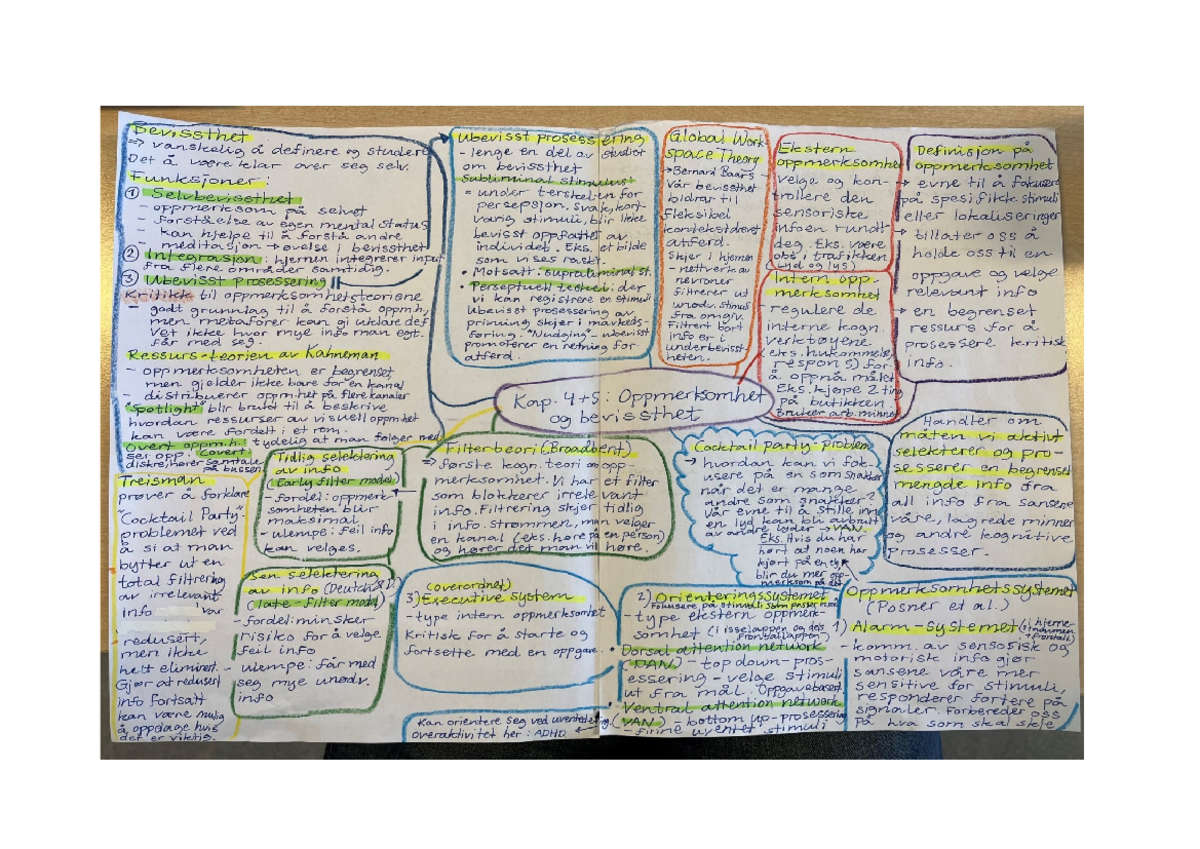 Bevissthet
⇒ vanskelig å definere og studere
Det å være klar over seg selv.
Funksjoner:
① Selvbevissthet
- oppmerksom på selvet
- forståelse av egen mental status
- kan hjelpe til å forstå andre
- meditasjon → øvelse i bevissthet
② Integrasjon: hjernen integrerer input
fra flere områder samtidig.
③ Ubevisst prosessering
Kritikk til oppmerksomhetsteoriene
- godt grunnlag til å forstå oppmh,
men metaforer kan gi uklare def
Vet ikke hvor mye info man egt.
får med seg.
Ressurs-teorien av Kahneman
- oppmerksomheten er begrenset
men gjelder ikke bare for en kanal
- distribuerer oppmhet på flere kanaler
"Spotlight" blir brukt til å beskrive
hvordan ressurser av visuell oppmhet
kan være fordelt i et rom.
Overt oppm.h: tydelig at man følger med
ser opp. Covert:
diskre, hører samtale
på bussen
Treisman
prøver å forklare
"Cocktail Party"-
problemet ved
å si at man
bytter ut en
total filtrering
av irrelevant
info
var
redusert,
men ikke
helt eliminert.
Gjør at redusert
info fortsatt
kan være mulig
å oppdage hvis
det er viktig.
Tidlig selektering
av info
(Early filter model)
- fordel: oppmerk-
somheten blir
maksimal
- ulempe: feil info
kan velges.
Sen selektering
av info (Deutch & D.
(late-filter model)
- fordel: minsker
risiko for å velge
feil info
- ulempe: får med
seg mye unødv.
info
Ubevisst prosessering
- lenge en del av studiet
om bevissthet
Subliminal stimulus
= under terskelen for
persepsjon. Svake, kort-
varig stimuli, blir ikke
bevisst oppfattet av
individet. Eks. et bilde
som vises raskt.
• Motsatt: supraliminal st.
• Perseptuell terskel: der
vi kan registrere en stimuli
Ubevisst prosessering av
priming skjer i markeds-
føring. "Nudging" - ubevisst
promoterer en retning for
atferd.
Global Work-
space Theory
→ Bernard Baars -
Vår bevissthet
bidrar til
fleksibel
kontekstdrevet
atferd.
Skjer i hjernen
- nettverk av
nevroner
filtrerer ut
unødv. stimuli
fra omgiv.
Filtrert bort
info er i
underbevisst-
heten.
Ekstern
oppmerksomhet
velge og kon-
trollere den
sensoriske
infoen rundt
deg. Eks. være
obs i trafikken
(lyd og lys)
Intern opp-
merksomhet
- regulere de
interne kogn.
verktøyene
(eks. hukommelse,
respons) for
å oppnå målet
Eks. kjøpe 2 ting
på butikken.
Bruker arb.minnet
Definisjon på
oppmerksomhet
→ evne til å fokusere
på spesifikk stimuli
eller lokaliseringer
→ tillater oss å
holde oss til en
oppgave og velge
relevant info
→ en begrenset
ressurs for å
prosessere kritisk
info.
Kap. 4+5: Oppmerksomhet
og bevissthet
Filterteori (Broadbent)
⇒ første kogn. teori om opp-
merksomhet. Vi har et filter
som blokkerer irrelevant
info. Filtrering skjer tidlig
i info. strømmen, man velger
en kanal (eks. høre på en person)
og hører det man vil høre.
Cocktail Party-Problem
→ hvordan kan vi fok-
usere på en som snakker
når det er mange
andre som snakker?
Vår evne til å stille inn
en lyd kan bli avbrutt
av andre lyder → VAN.
Eks. Hvis du har
hørt at noen har
kjørt på en elg,
blir du mer opp-
merksom på det
Handler om
måten vi aktivt
selekterer og pro-
sesserer en begrenset
mengde info fra
all info fra sansene
våre, lagrede minner
og andre kognitive
prosesser.
(overordnet)
3) Executive system
- type intern oppmerksomhet
Kritisk for å starte og
fortsette med en oppgave.
Kan orientere seg ved uventet
overaktivitet her: ADHD
2) Orienteringssystemet
Fokusere på stimuli som passer
- type ekstern oppmerk-
somhet (i isselappen og dels
frontallappen)
• Dorsal attention network
(DAN) - top down-pros-
essering - velge stimuli
ut fra mål. Oppgavebasert
• Ventral attention network
(VAN) - bottom up-prosessering
- finne uventet stimuli
Oppmerksomhetssystemet
(Posner et al.)
1) Alarm-systemet (i hjerne-
stammen
+ frontal)
- komm. av sensorisk og
motorisk info gjør
sansene våre mer
sensitive for stimuli,
respondere fortere på
signaler. Forbereder oss
på hva som skal skje